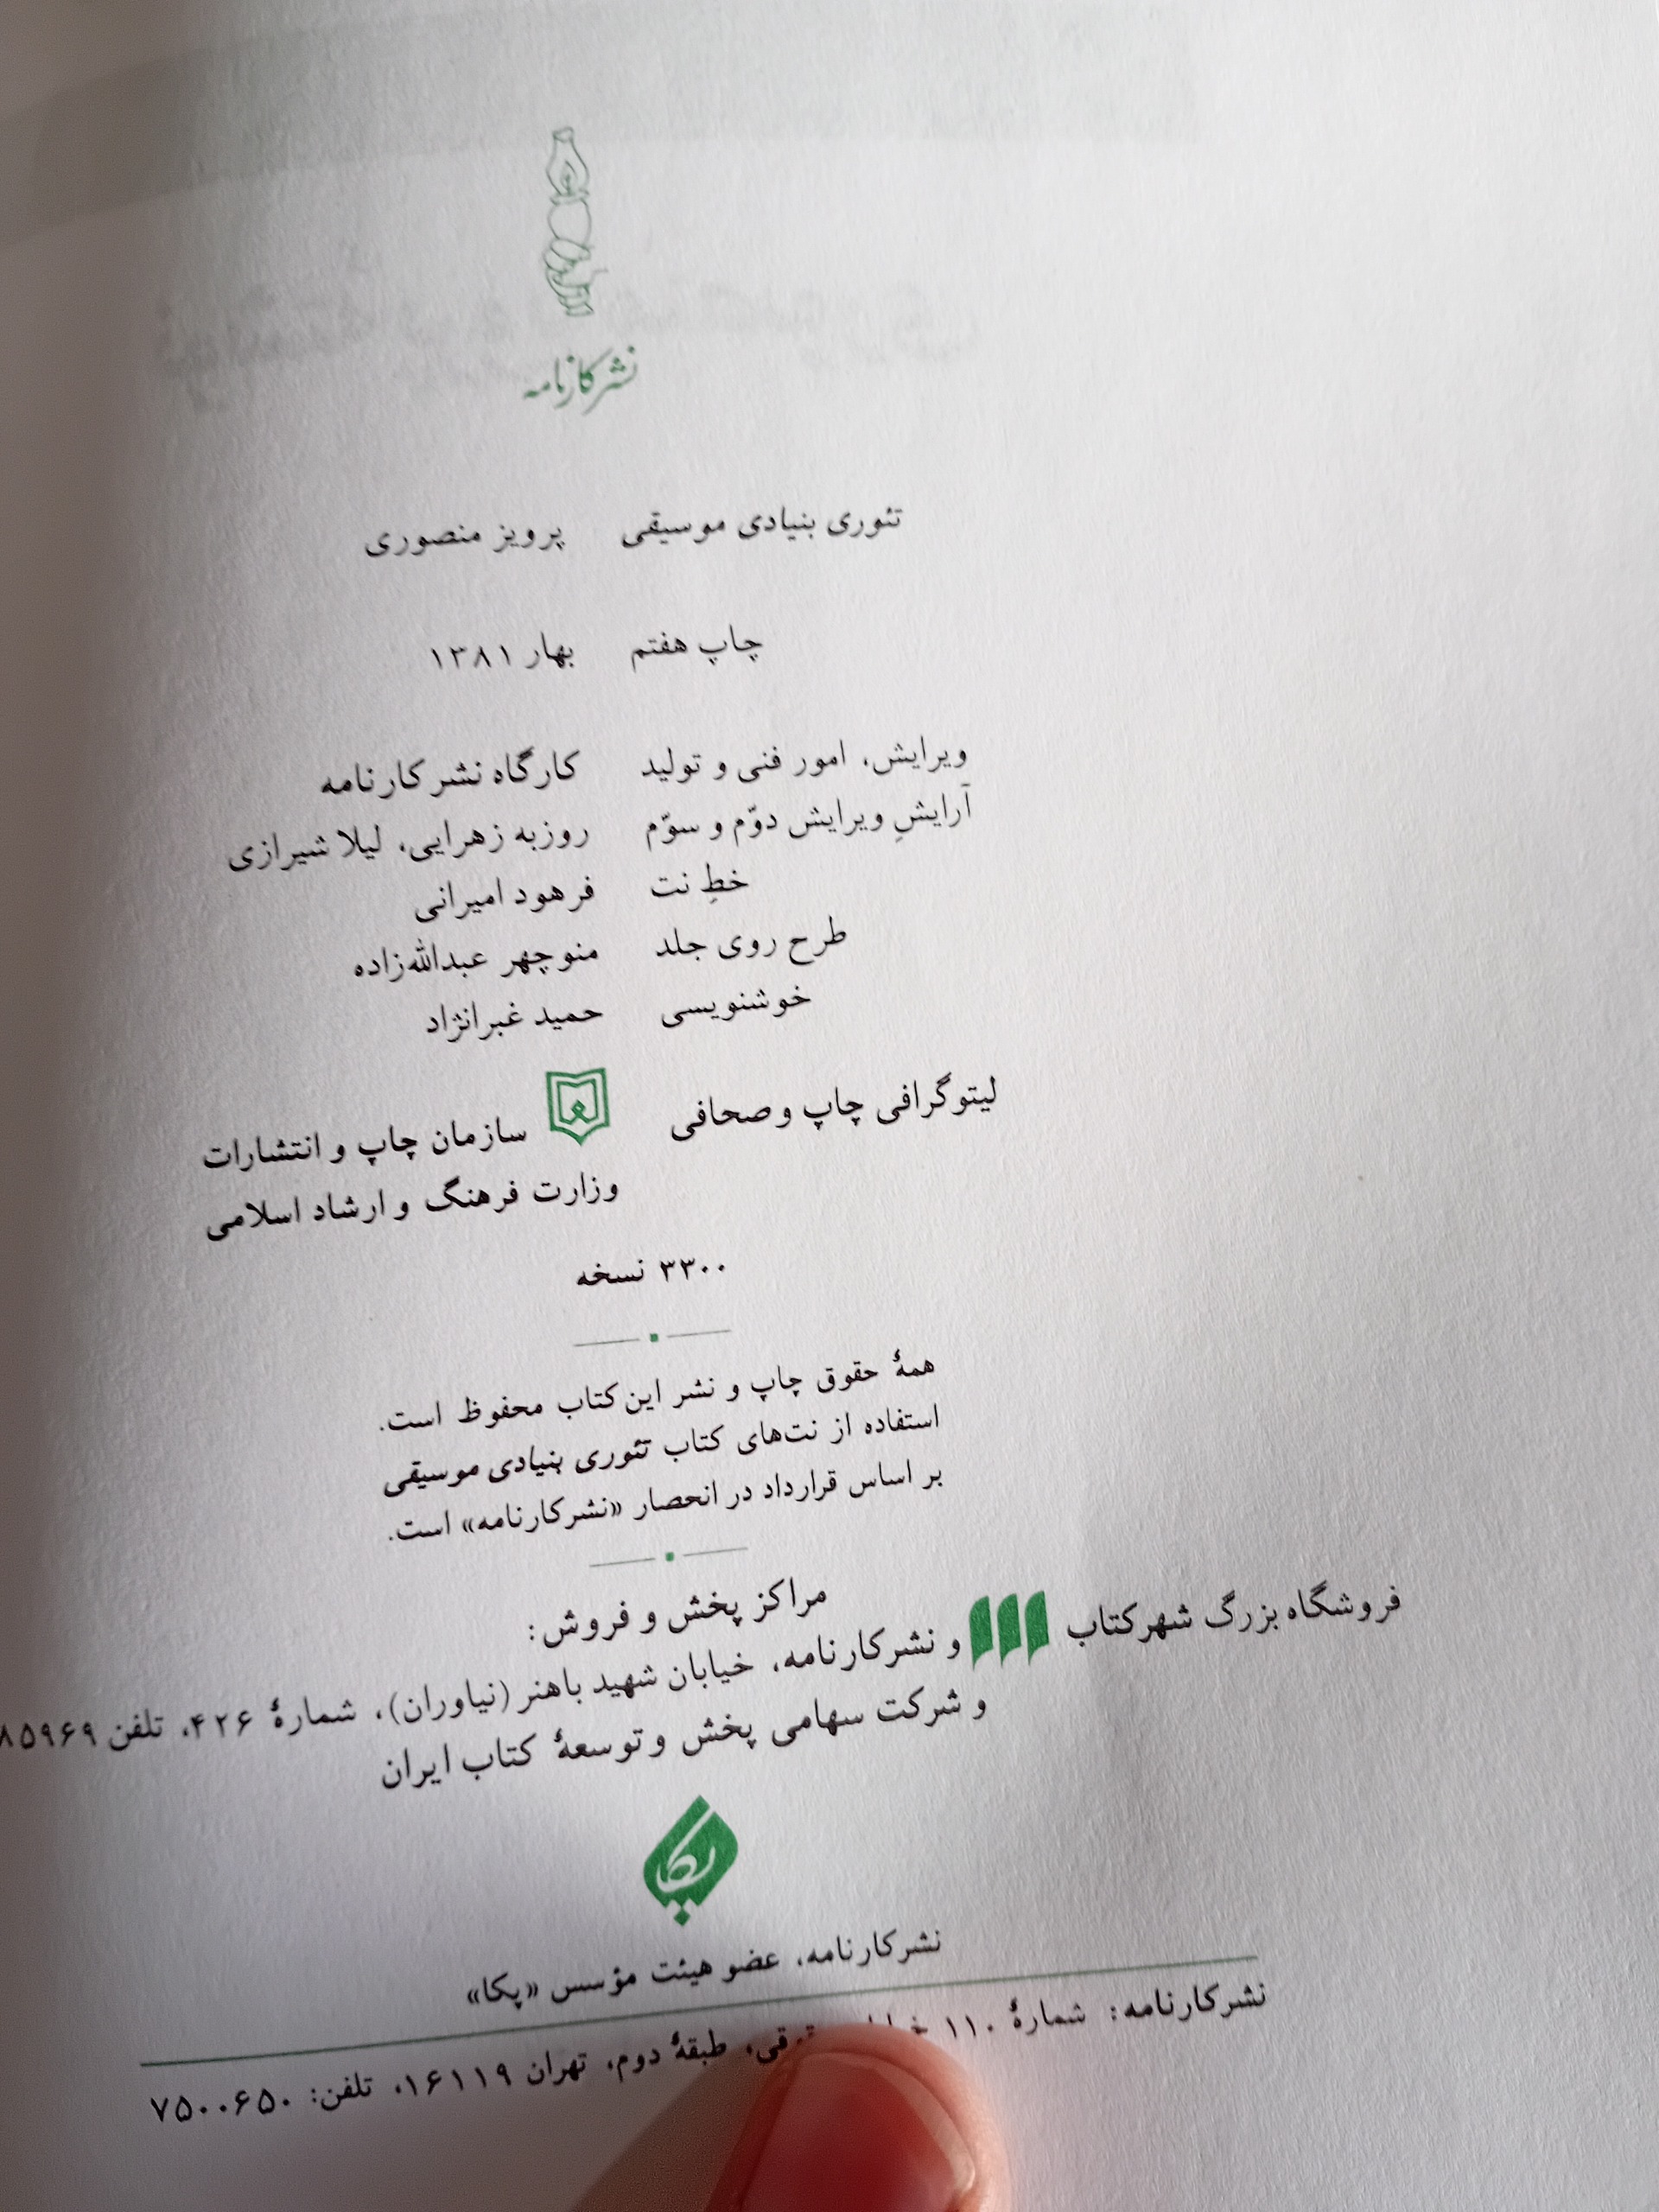 نشر کارنامه
تئوری بنیادی موسیقی پرویز منصوری
چاپ هفتم بهار ۱۳۸۱
ویرایش، امور فنی و تولید کارگاه نشر کارنامه
آرایشِ ویرایش دوّم و سوّم روزبه زهرایی، لیلا شیرازی
خطِ نت فرهود امیرانی
طرح روی جلد منوچهر عبدالله‌زاده
خوشنویسی حمید غبرانژاد
لیتوگرافی چاپ و صحافی سازمان چاپ و انتشارات
وزارت فرهنگ و ارشاد اسلامی
۳۳۰۰ نسخه
همهٔ حقوق چاپ و نشر این کتاب محفوظ است.
استفاده از نت‌های کتاب تئوری بنیادی موسیقی
بر اساس قرارداد در انحصار «نشر کارنامه» است.
مراکز پخش و فروش:
فروشگاه بزرگ شهر کتاب و نشر کارنامه، خیابان شهید باهنر (نیاوران)، شمارهٔ ۴۲۶، تلفن
و شرکت سهامی پخش و توسعهٔ کتاب ایران
پکا
نشر کارنامه، عضو هیئت مؤسس «پکا»
نشر کارنامه: شمارهٔ ۱۱۰ طبقهٔ دوم، تهران ۱۶۱۱۹، تلفن: ۷۵۰۰۶۵۰